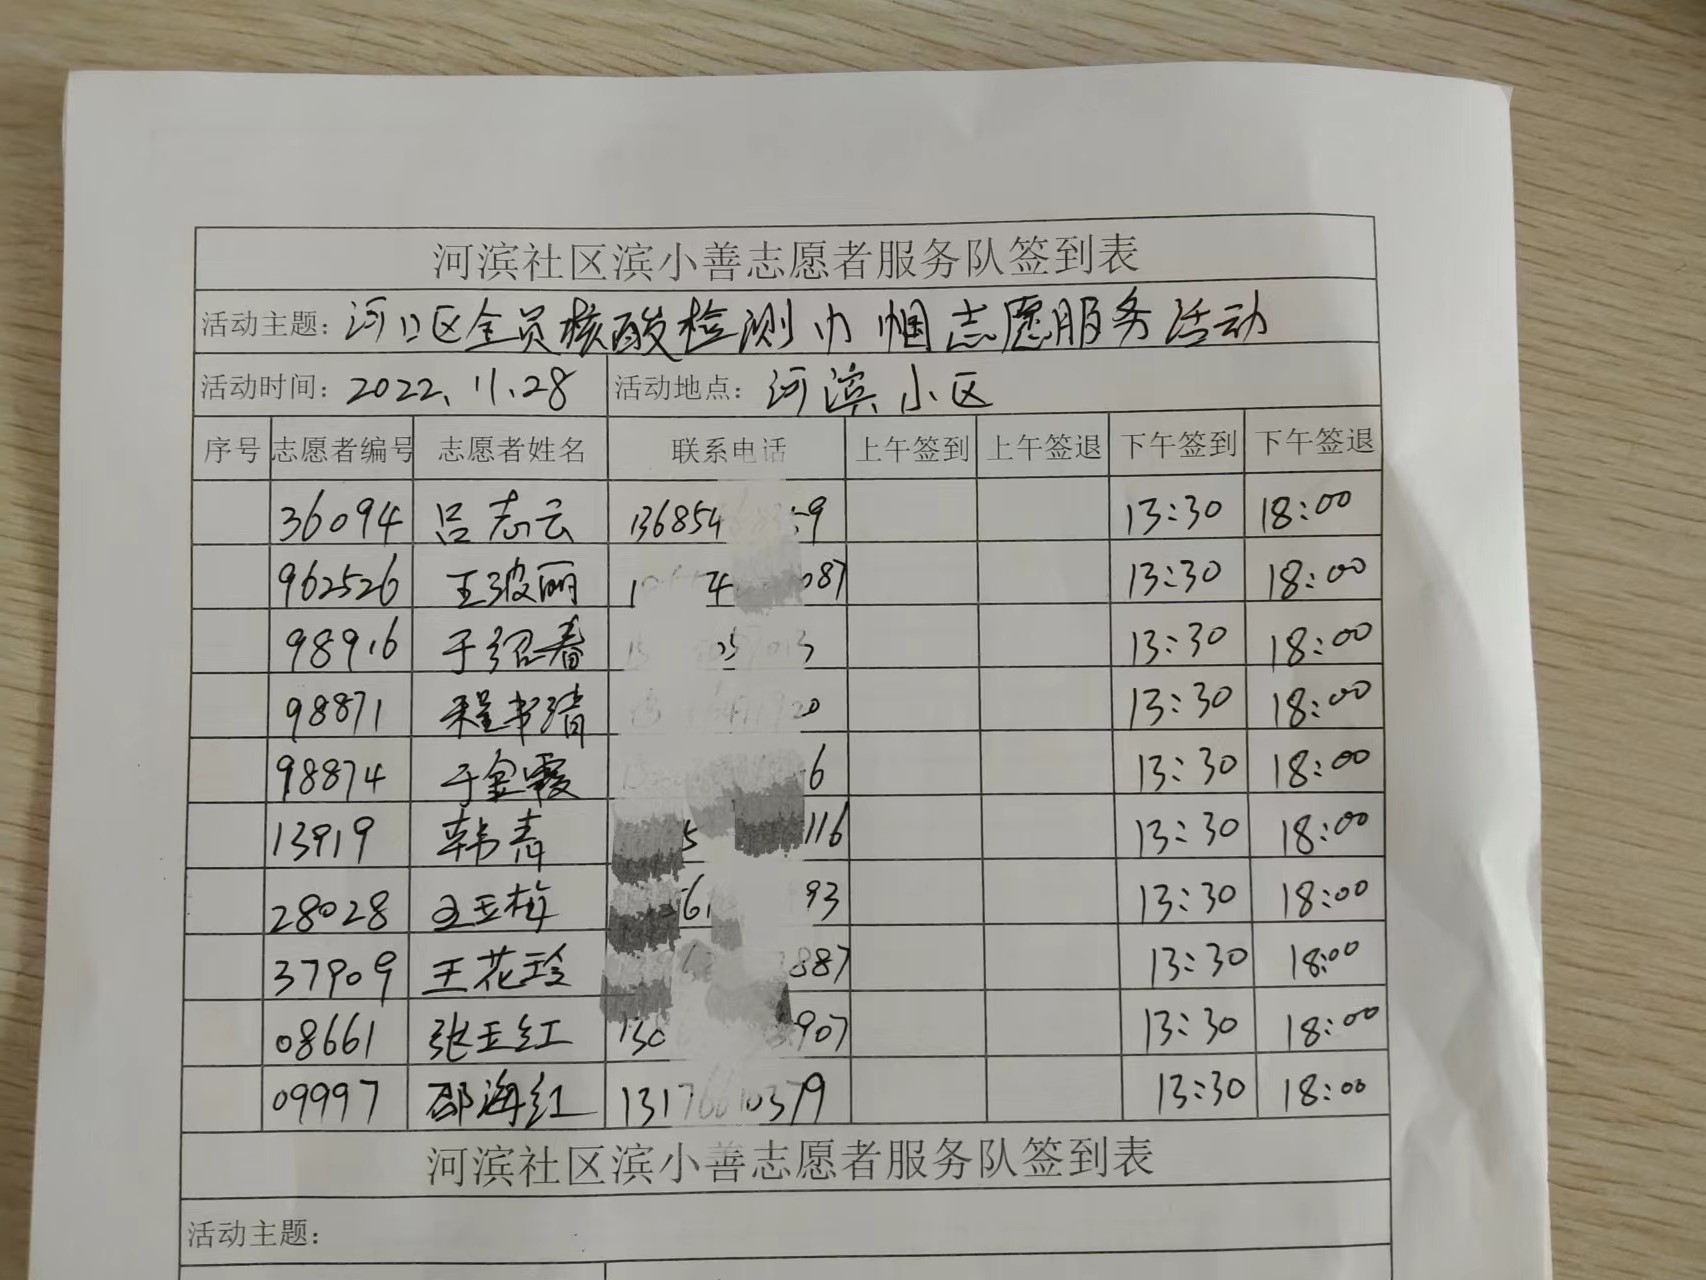 河滨社区滨小善志愿者服务队签到表
活动主题: 河口区全员核酸检测巾帼志愿服务活动
活动时间: 2022.11.28 活动地点: 河滨小区
序号 志愿者编号 志愿者姓名 联系电话 上午签到 上午签退 下午签到 下午签退
36094 吕志云 13:30 18:00
962526 王波丽 13:30 18:00
98916 于绍春 13:30 18:00
98871 程书清 13:30 18:00
98874 于金霞 13:30 18:00
13919 韩青 13:30 18:00
28028 王玉梅 13:30 18:00
37909 王花玲 13:30 18:00
08661 张玉红 13:30 18:00
09997 邵海红 13:30 18:00
河滨社区滨小善志愿者服务队签到表
活动主题: